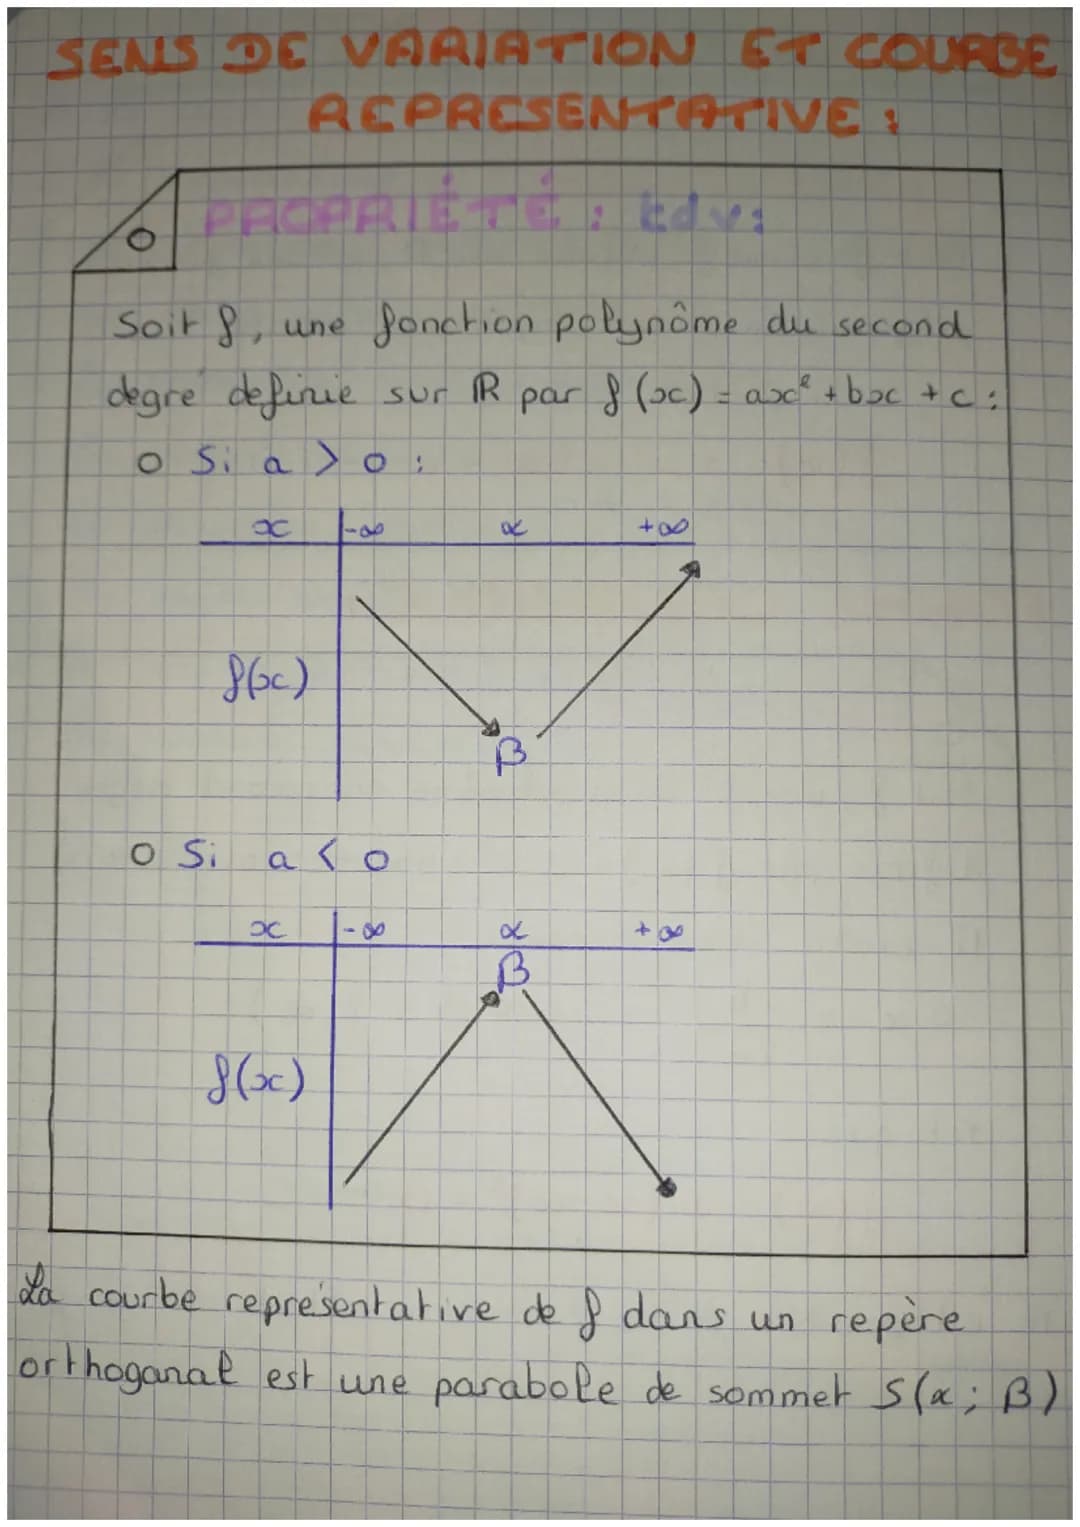 SENS DE VARIATION ET COURBE
REPRESENTATIVE :
PROPRIÉTÉ : tdv:
Soit f, une fonction polynôme du second
degré definie sur ℝ par f(x) = ax² + bx + c :
o Si a > 0 :
x -∞ α +∞
f(x)
β
o Si a < 0
x -∞ α +∞
β
f(x)
La courbe représentative de f dans un repère
orthoganal est une parabole de sommet S(α ; β)